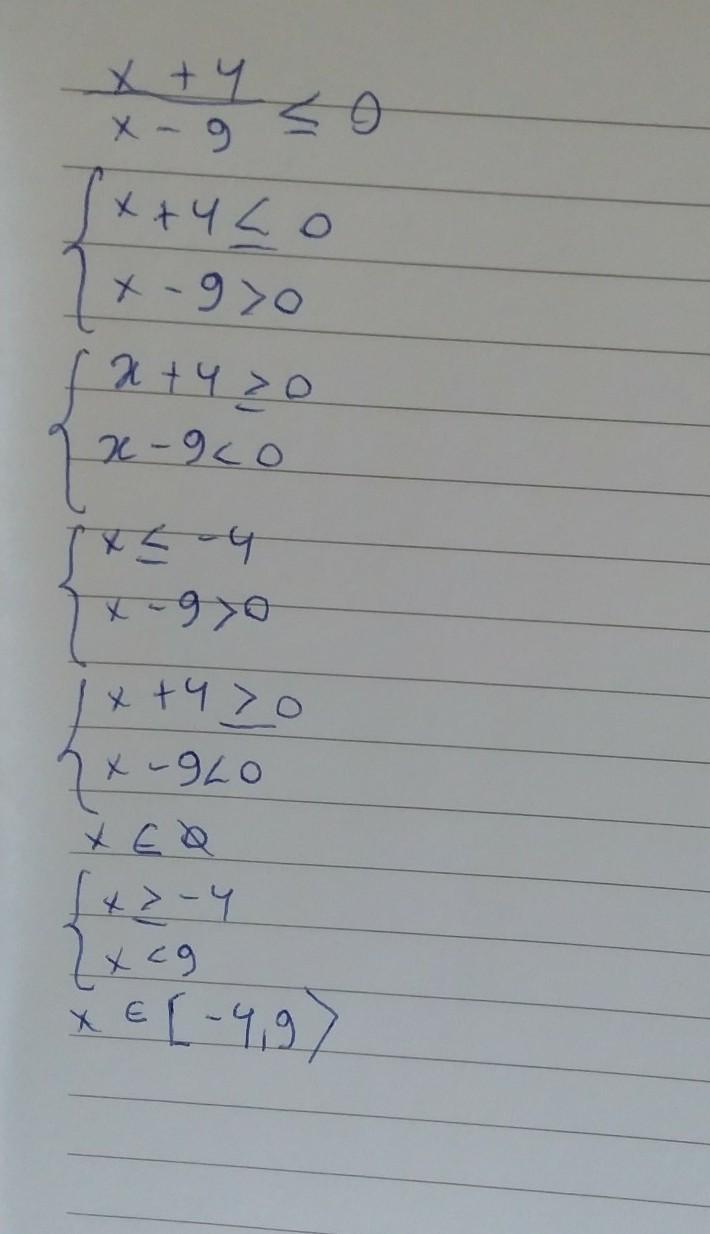 x + 4
x - 9 ≤ 0
x + 4 ≤ 0
x - 9 > 0
x + 4 ≥ 0
x - 9 < 0
x ≤ -4
x - 9 > 0
x + 4 ≥ 0
x - 9 < 0
x ∈ Ø
x ≥ -4
x < 9
x ∈ [-4,9⟩